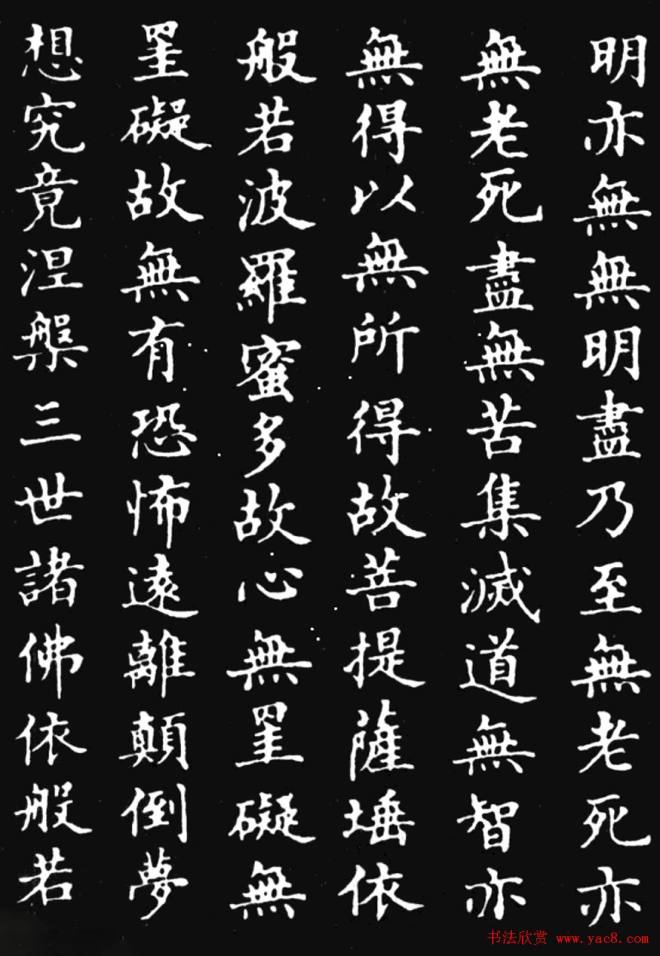 明亦無無明盡乃至無老死亦
無老死盡無苦集滅道無智亦
無得以無所得故菩提薩埵依
般若波羅蜜多故心無罣礙無
罣礙故無有恐怖遠離顛倒夢
想究竟涅槃三世諸佛依般若
书法欣赏 www.yac8.com